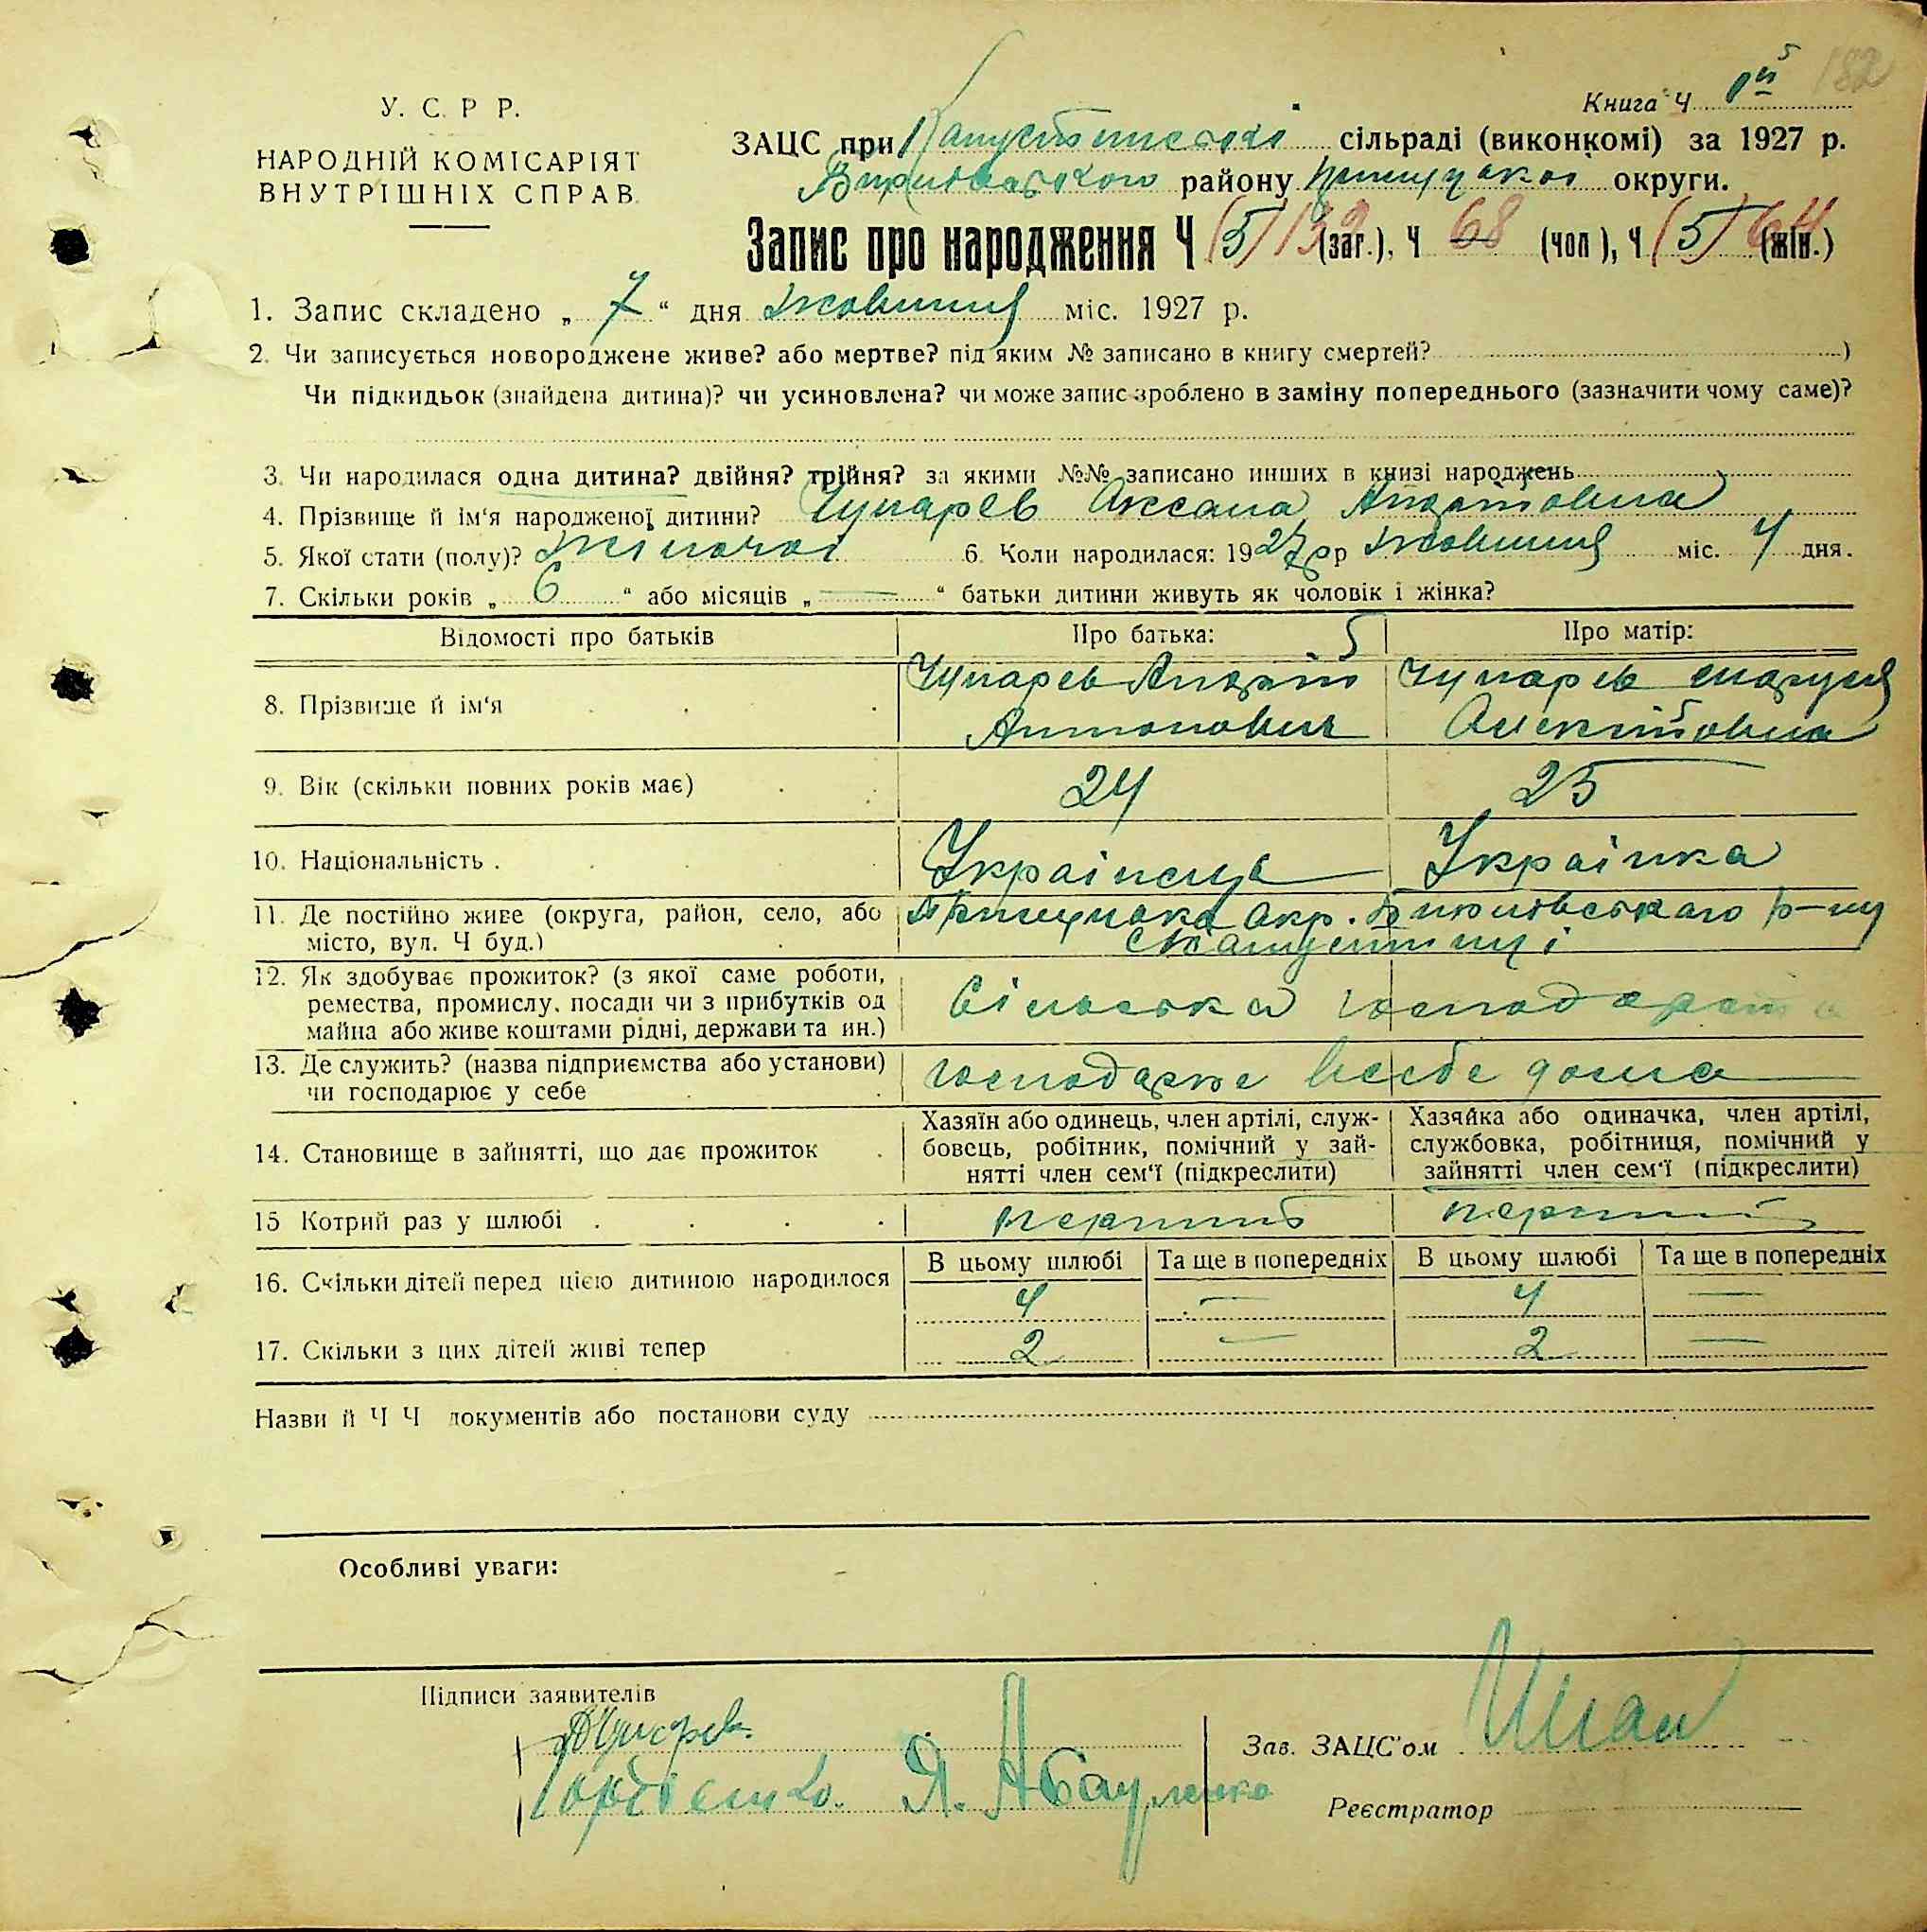 182
У. С. Р. Р.
НАРОДНІЙ КОМІСАРІЯТ
ВНУТРІШНІХ СПРАВ
Книга Ч
ЗАЦС при Капустинській сільраді (виконкомі) за 1927 р.
району Прилуцької округи.
Запис про народження Ч (5) 132 (заг.), Ч 68 (чол), Ч (5) 64 (жін.)
1. Запис складено „ 7 “ дня жовтня міс. 1927 р.
2. Чи записується новороджене живе? або мертве? під яким № записано в книгу смертей? )
Чи підкидьок (знайдена дитина)? чи усиновлена? чи може запис зроблено в заміну попереднього (зазначити чому саме)?
3. Чи народилася одна дитина? двійня? трійня? за якими №№ записано инших в книзі народжень
4. Прізвище й ім‘я народженої дитини? Чупарев Аксана Андрітовна
5. Якої стати (полу)? жіночої 6. Коли народилася: 1927 р жовтня міс. 4 дня.
7. Скільки років „ 6 “ або місяців „ — “ батьки дитини живуть як чоловік і жінка?
Відомості про батьків Про батька: Про матір:
8. Прізвище й ім‘я Чупарев Андрій Чупарев
Антонович
9. Вік (скільки повних років має) 24 25
10. Національність Українець Українка
11. Де постійно живе (округа, район, село, або Прилуцька окр. р-ну
місто, вул. Ч буд.) с Капустинці
12. Як здобуває прожиток? (з якої саме роботи,
ремества, промислу, посади чи з прибутків од
майна або живе коштами рідні, держави та ин.) Сільська господарст
13. Де служить? (назва підприємства або установи)
чи господарює у себе господарює в себе дома
14. Становище в зайнятті, що дає прожиток
Хазяїн або одинець, член артілі, служ-
бовець, робітник, помічний у зай-
нятті член сем‘ї (підкреслити)
Хазяйка або одиначка, член артілі,
службовка, робітниця, помічний у
зайнятті член сем‘ї (підкреслити)
15 Котрий раз у шлюбі перший перший
В цьому шлюбі Та ще в попередніх В цьому шлюбі Та ще в попередніх
16. Скільки дітей перед цією дитиною народилося 4 — 4 —
17. Скільки з цих дітей живі тепер 2 — 2 —
Назви й Ч Ч документів або постанови суду
Особливі уваги:
Підписи заявителів
Зав. ЗАЦС‘ом
Реєстратор